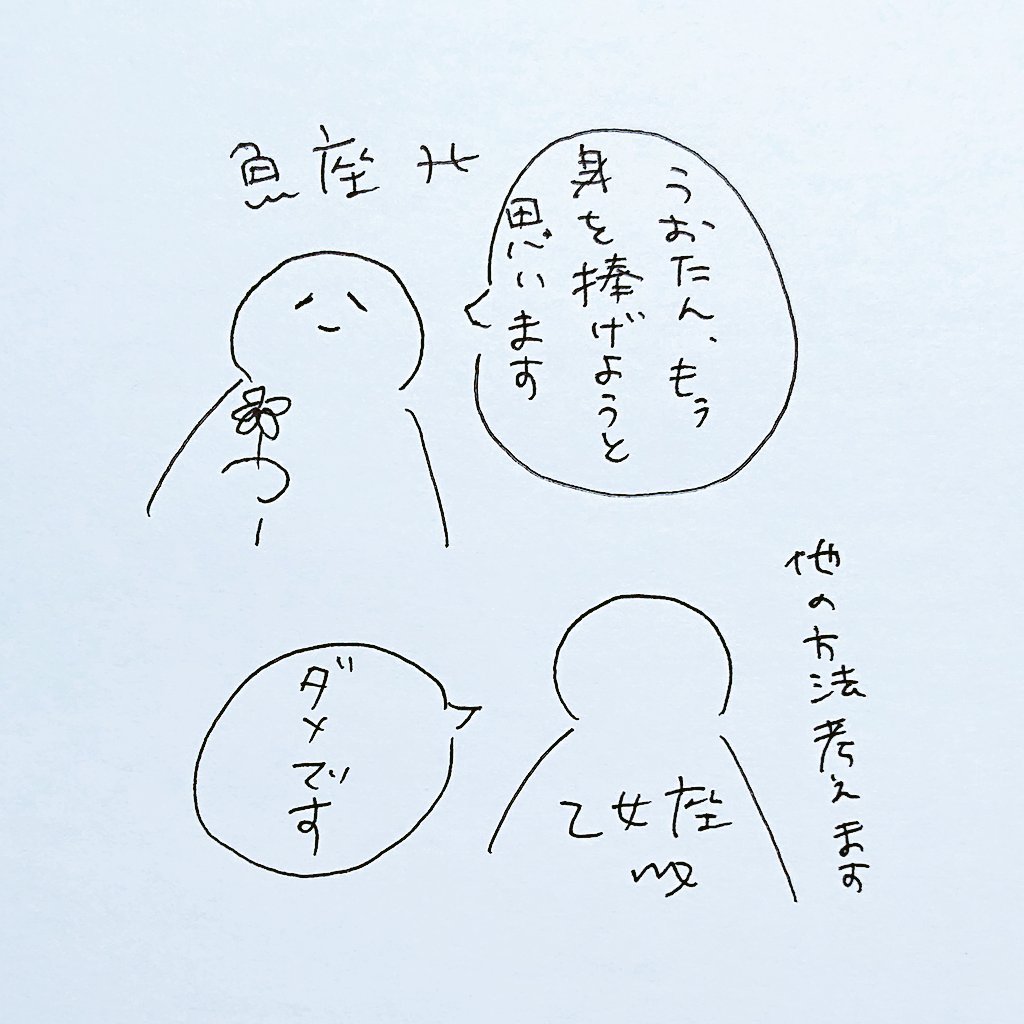 魚座 ♓
うおたん、もう
身を捧げようと
思います
他の方法考えます
ダメです
乙女座
♍